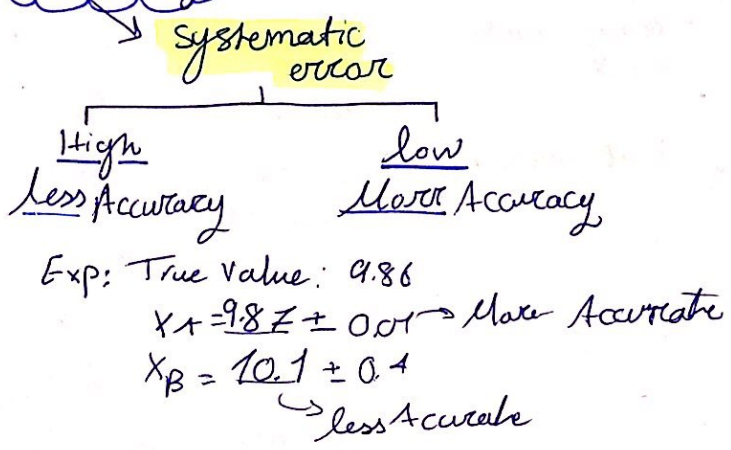 systematic
error
High low
less Accuracy Morr Accuracy
Exp: True Value: 9.86
XA = 9.8Z ± 0.01 → More Accurate
XB = 10.1 ± 0.4
→ less Acurate